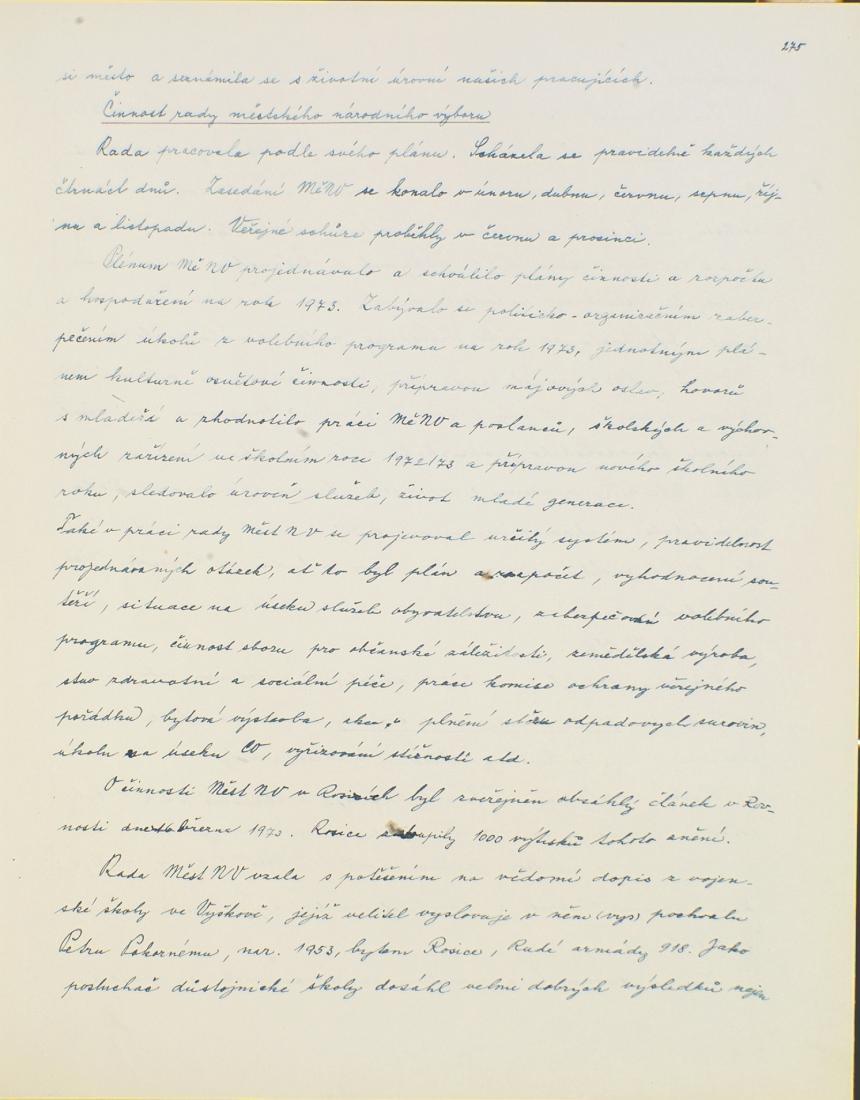 275
si město a seznámila se s životní úrovní našich pracujících.
Činnost rady městského národního výboru
Rada pracovala podle svého plánu. Scházela se pravidelně každých
čtrnáct dnů. Zasedání MěNV se konalo v únoru, dubnu, červnu, srpnu, říj-
nu a listopadu. Veřejné schůze proběhly v červnu a prosinci.
Plénum MěNV projednávalo a schválilo plány činnosti a rozpočtu
a hospodaření na rok 1973. Zabývalo se politicko-organizačním zabez-
pečením úkolů z volebního programu na rok 1973, jednotným plá-
nem kulturně osvětové činnosti, přípravou májových oslav, hovorů
s mládeží a zhodnotilo práci MěNV a poslanců, školských a výchov-
ných zařízení ve školním roce 1972/73 a přípravou nového školního
roku, sledovalo úroveň služeb, život mladé generace.
Také v práci rady Měst NV se projevoval určitý systém, pravidelnost
projednávaných otázek, ať to byl plán a rozpočet, vyhodnocení sou-
těží, situace na úseku služeb obyvatelstvu, zabezpečování volebního
programu, činnost sboru pro občanské záležitosti, zemědělská výroba,
stav zdravotní a sociální péče, práce komise ochrany veřejného
pořádku, bytová výstavba, akce „ plnění sběru odpadových surovin,
úkolu na úseku CO, vyřizování stížností atd.
O činnosti Měst NV v Rosicích byl zveřejněn obsáhlý článek v Rov-
nosti dne 16 března 1973. Rosice zakoupily 1000 výtisků tohoto znění.
Rada Měst NV vzala s potěšením na vědomí dopis z vojen-
ské školy ve Vyškově, jejíž velitel vyslovuje v něm (vys) pochvalu
Petru Pokornému, nar. 1953, bytem Rosice, Rudé armády 918. Jako
posluchač důstojnické školy dosáhl velmi dobrých výsledků nejen